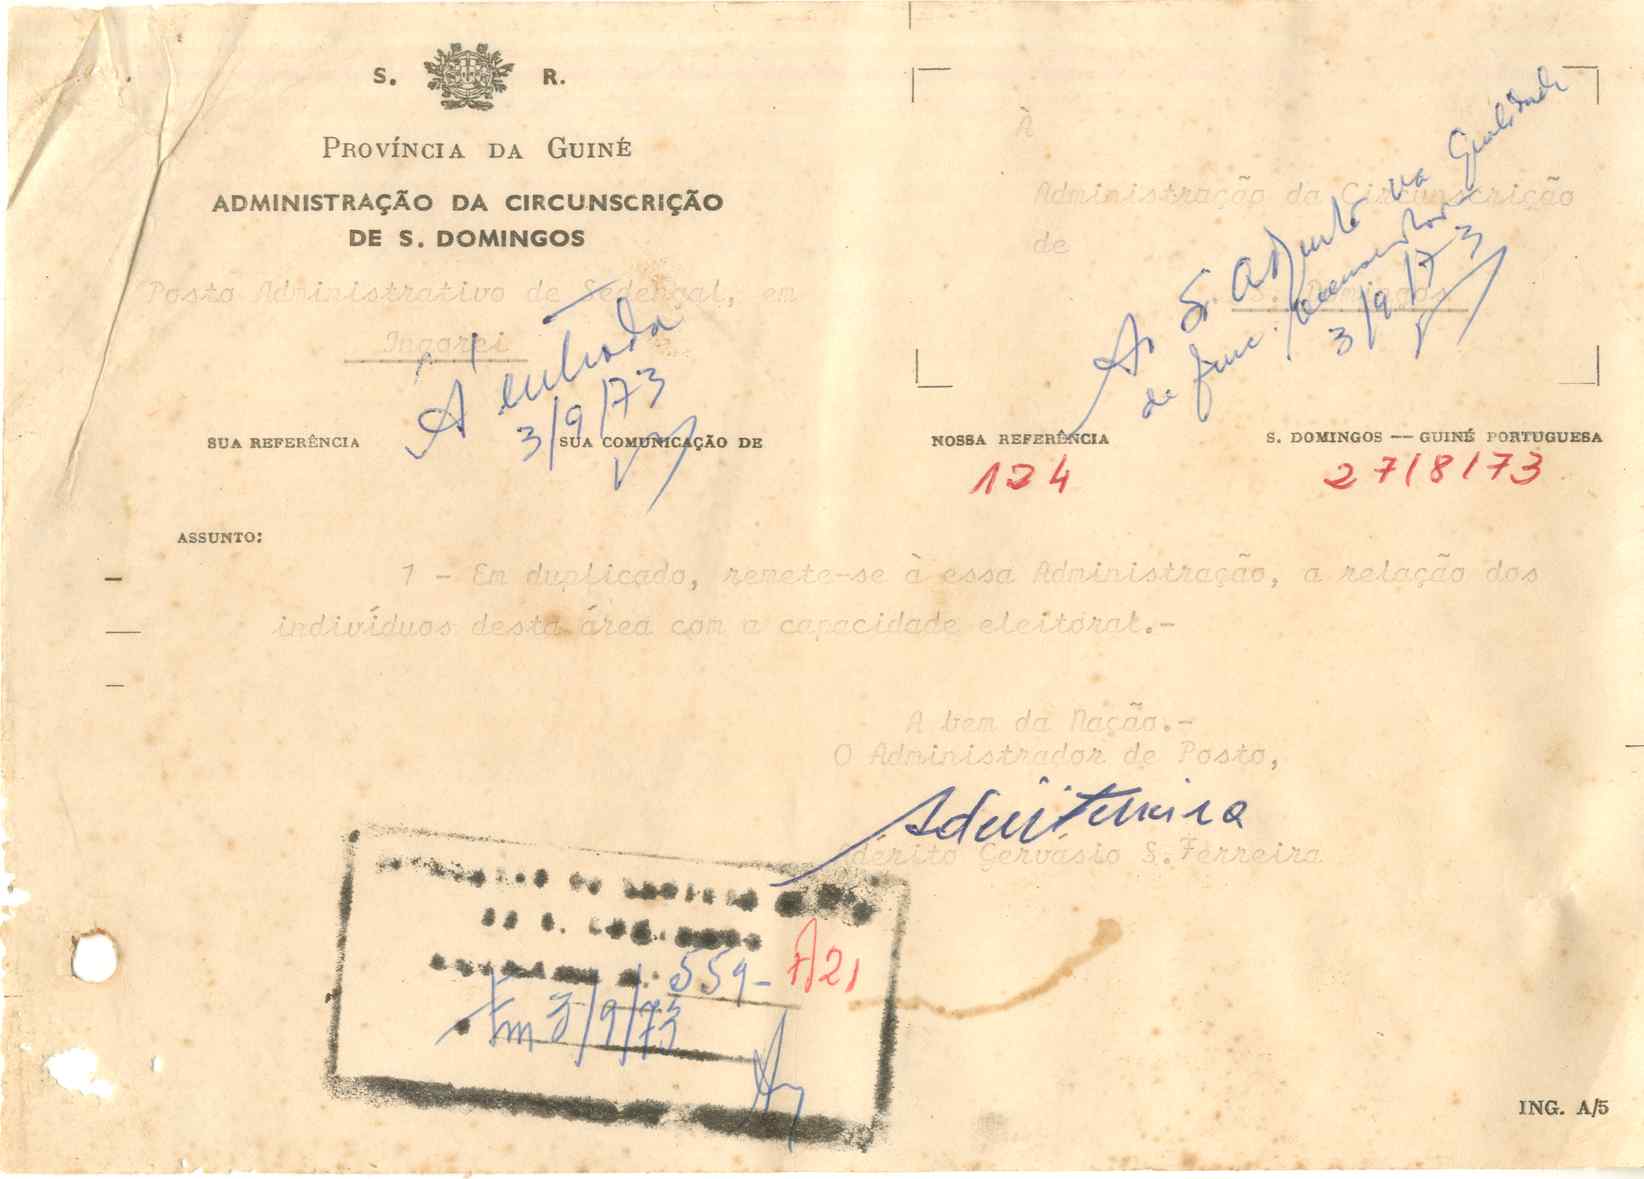 S. R.
PROVÍNCIA DA GUINÉ
ADMINISTRAÇÃO DA CIRCUNSCRIÇÃO
DE S. DOMINGOS
Posto Administrativo de Sedengal, em
Ingorei
À entrada
3/9/73
À
Administração da Circunscrição
de
S. Domingos
Ao Sr. Adjunto na qualidade
de func. recenseador
3/9/73
SUA REFERÊNCIA
SUA COMUNICAÇÃO DE
NOSSA REFERÊNCIA
124
S. DOMINGOS -- GUINÉ PORTUGUESA
27/8/73
ASSUNTO:
1 - Em duplicado, remete-se à essa Administração, a relação dos
indivíduos desta área com a capacidade eleitoral.-
A bem da Nação.-
O Administrador de Posto,
dérito Gervásio S. Ferreira
559- A21
Em 3/9/73
ING. A/5